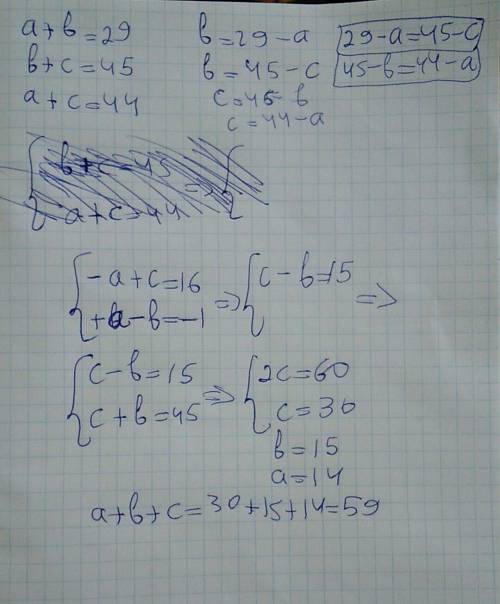 a+b=29
b+c=45
a+c=44
b=29-a
b=45-c
c=45-b
c=44-a
29-a=45-c
45-b=44-a
-a+c=16
+a-b=-1
=> c-b=15 =>
c-b=15
c+b=45
=> 2c=60
c=30
b=15
a=14
a+b+c=30+15+14=59